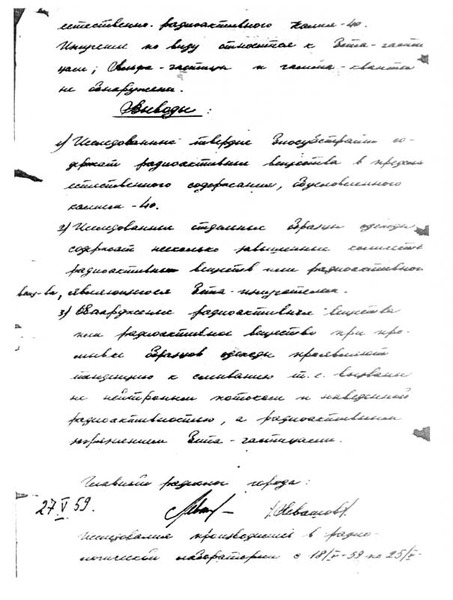 естественно-радиоактивного калия-40.
Излучение по виду относится к бета-части-
цам; Альфа-частицы и гамма-кванты
не обнаружены.
Выводы:
1) Исследованные твердые биосубстраты со-
держат радиоактивные вещества в пределах
естественного содержания, обусловленного
калием-40.
2) Исследованные отдельные образцы одежды
содержат несколько завышенные количества
радиоактивных веществ или радиоактивного
вещ-ва, являющегося бета-излучателем.
3) Обнаруженные радиоактивные вещества
или радиоактивное вещество при про-
мывке образцов одежды проявляют
тенденцию к смыванию т.е. вызваны
не нейтронным потоком и наведенной
радиоактивностью, а радиоактивным
загрязнением бета-частицами.
Главный радиолог города:
27 V 59. Левашов
Исследования производились в радио-
логической лаборатории с 18/V-59 по 25/V-